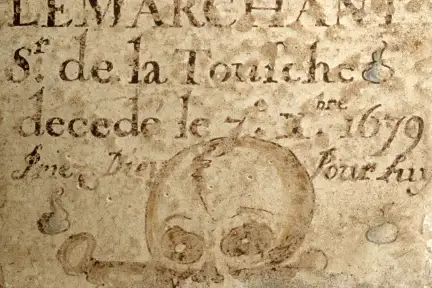 LEMARCHANT
Sr. de la Touſche
decedé le 7.e X.bre 1679
Priez Dieu Pour luy